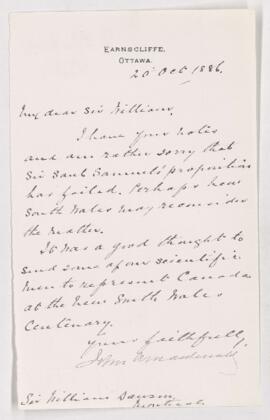 EARNSCLIFFE,
OTTAWA.
20 Oct 1886.
My dear Sir William,
I have your notes
and am rather sorry that
Sir Saul Samuel's proposition
has failed. Perhaps New
South Wales may reconsider
the matter.
It was a good thought to
send some of our scientific
men to represent Canada
at the New South Wales
Centenary.
Yours faithfully
John A Macdonald
Sir William Dawson
Montreal